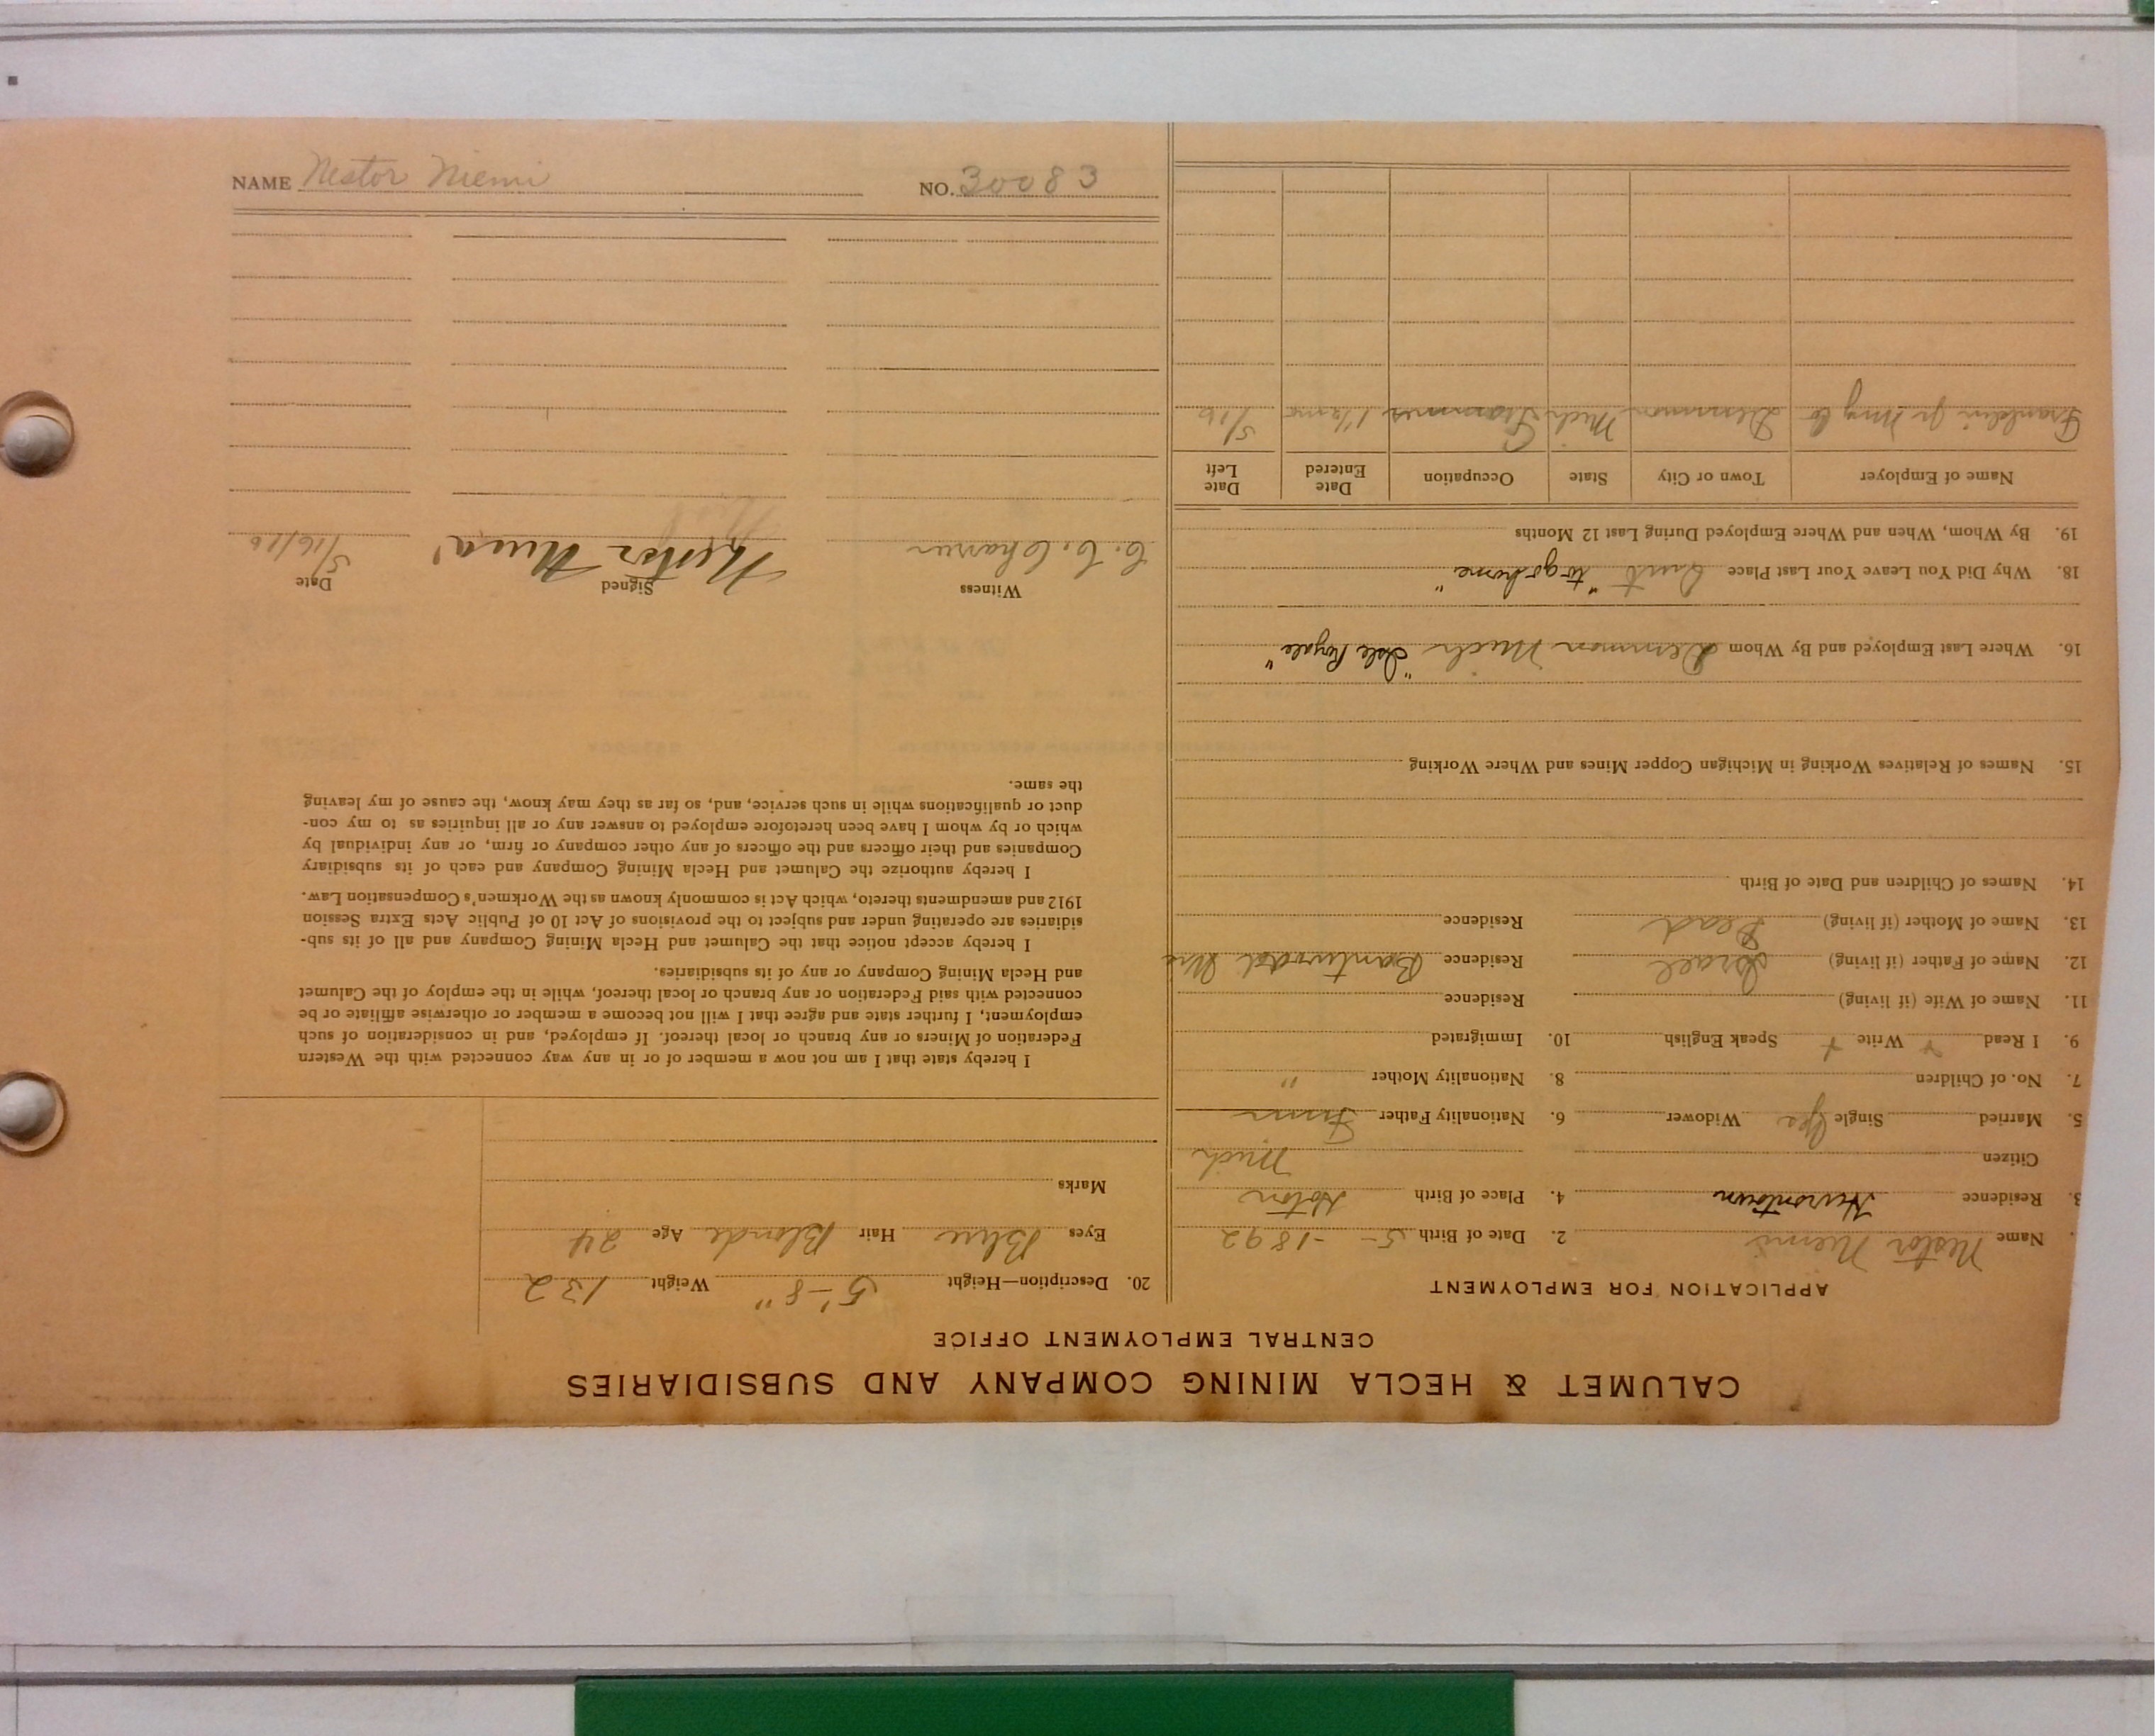 CALUMET & HECLA MINING COMPANY AND SUBSIDIARIES
CENTRAL EMPLOYMENT OFFICE
APPLICATION FOR EMPLOYMENT
Name Nestor Niemi 2. Date of Birth 5- -1892
3. Residence Hurontown 4. Place of Birth Hoton
Citizen Mich
5. Married Single Yes Widower 6. Nationality Father Finn
7. No. of Children 8. Nationality Mother "
9. I Read + Write + Speak English 10. Immigrated
11. Name of Wife (if living) Residence
12. Name of Father (if living) Israel Residence
13. Name of Mother (if living) Dead Residence
14. Names of Children and Date of Birth
15. Names of Relatives Working in Michigan Copper Mines and Where Working
16. Where Last Employed and By Whom Demmon Mich "Isle Royale"
18. Why Did You Leave Your Last Place Quit "to go home"
19. By Whom, When and Where Employed During Last 12 Months
Name of Employer Town or City State Occupation Date Entered Date Left
Franklin Jr Mng Co Demmon Mich Trammer 1½ mo 5/16
20. Description—Height 5'-8" Weight 132
Eyes Blue Hair Blonde Age 24
Marks
I hereby state that I am not now a member of or in any way connected with the Western
Federation of Miners or any branch or local thereof. If employed, and in consideration of such
employment, I further state and agree that I will not become a member or otherwise affiliate or be
connected with said Federation or any branch or local thereof, while in the employ of the Calumet
and Hecla Mining Company or any of its subsidiaries.
I hereby accept notice that the Calumet and Hecla Mining Company and all of its sub-
sidiaries are operating under and subject to the provisions of Act 10 of Public Acts Extra Session
1912 and amendments thereto, which Act is commonly known as the Workmen's Compensation Law.
I hereby authorize the Calumet and Hecla Mining Company and each of its subsidiary
Companies and their officers and the officers of any other company or firm, or any individual by
which or by whom I have been heretofore employed to answer any or all inquiries as to my con-
duct or qualifications while in such service, and, so far as they may know, the cause of my leaving
the same.
Witness Signed Date
Nestor 5/16/16
NAME Nestor Niemi NO. 30083